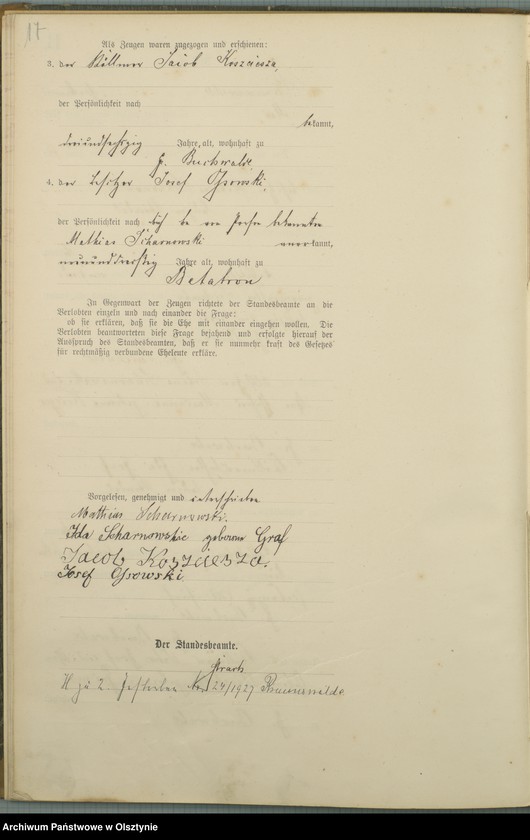 17
Als Zeugen waren zugezogen und erschienen:
3. der Käthner Jacob Kosziesza,
der Persönlichkeit nach
bekannt,
dreiundsechszig Jahre alt, wohnhaft zu
Gr. Buchwalde
4. der Besitzer Josef Ossowski,
der Persönlichkeit nach bekannten
Mathias Scharnowski anerkannt,
neununddreißig Jahre alt, wohnhaft zu
In Gegenwart der Zeugen richtete der Standesbeamte an die
Verlobten einzeln und nach einander die Frage:
ob sie erklären, daß sie die Ehe mit einander eingehen wollen. Die
Verlobten beantworteten diese Frage bejahend und erfolgte hierauf der
Ausspruch des Standesbeamten, daß er sie nunmehr kraft des Gesetzes
für rechtmäßig verbundene Eheleute erkläre.
Vorgelesen, genehmigt und unterschrieben
Matthias Scharnowski.
Ida Scharnowski geborene Graf
Jacob
Josef Ossowski
Der Standesbeamte.
H zu 2. Gestorben Nr. 24/1927 Braunswalde
Archiwum Państwowe w Olsztynie